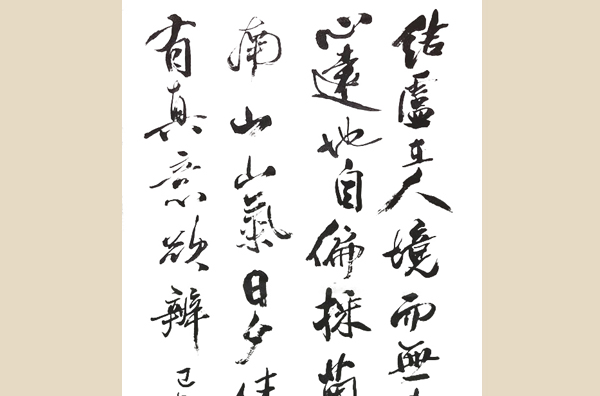 結廬在人境而無
心遠地自偏採菊
南山山氣日夕佳
有真意欲辨已